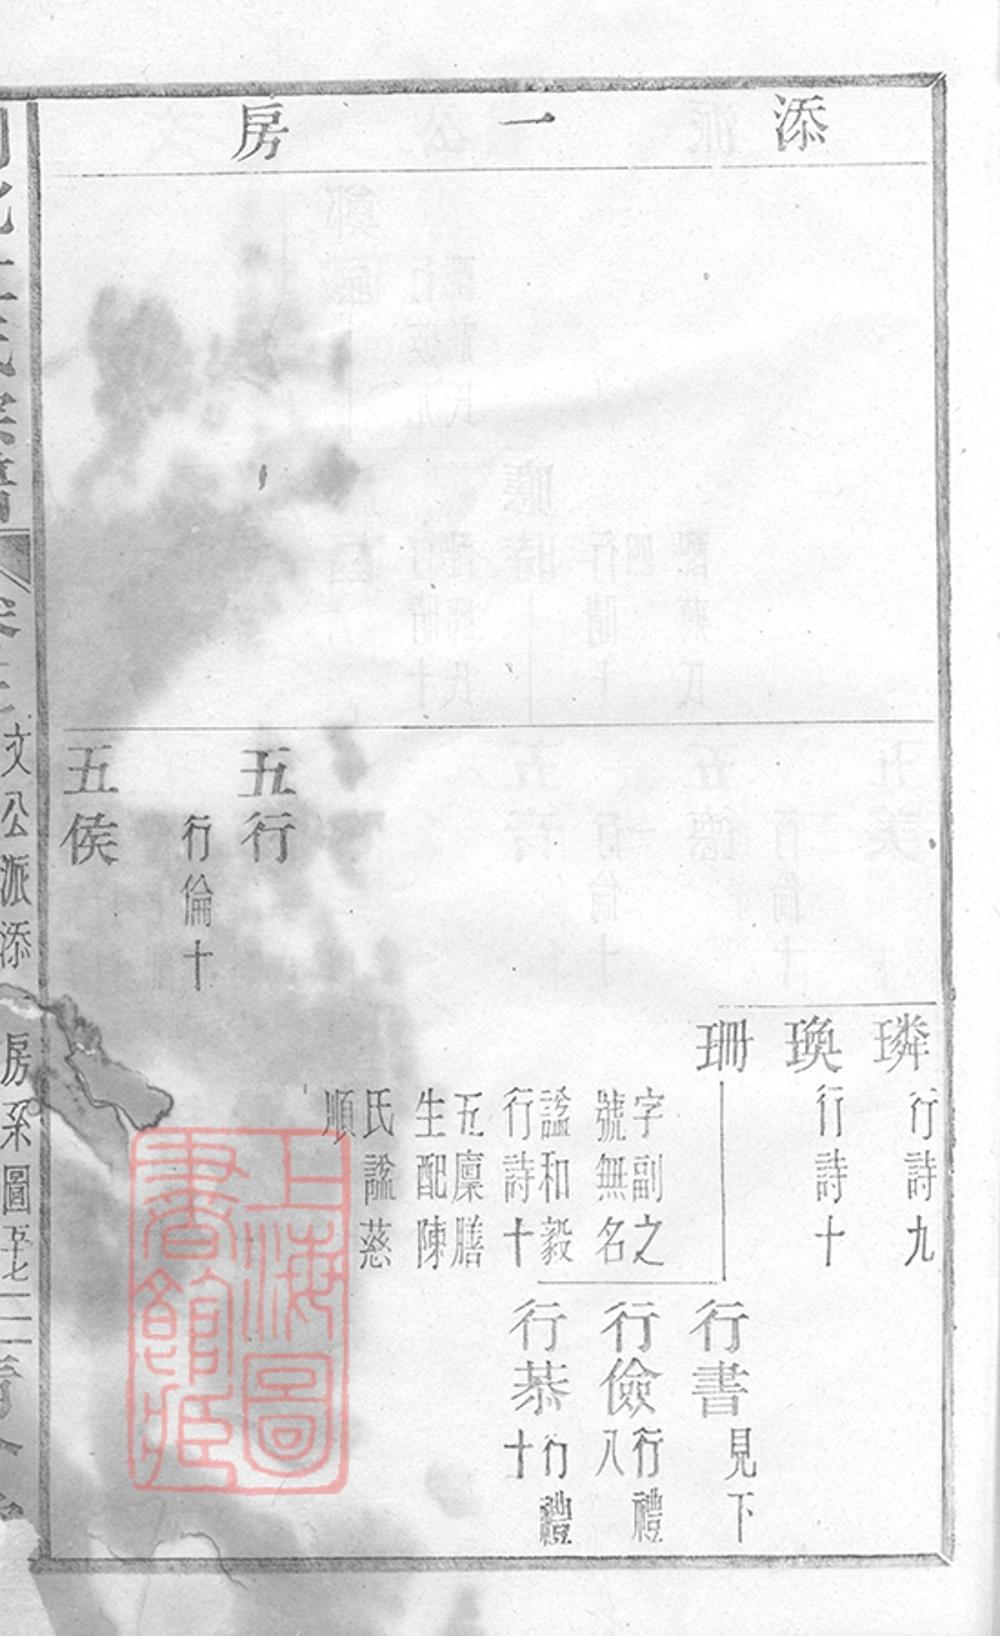 添一房
璘
行詩九
瑍
行詩十
珊
字副之
號無名
諡和毅
行詩十
五廩膳
生配陳
氏諡慈
順
行書
見下
行儉
行禮
八
行恭
行禮
十
五行
行倫十
五侯
文公派添一房系圖
上海圖
書館藏